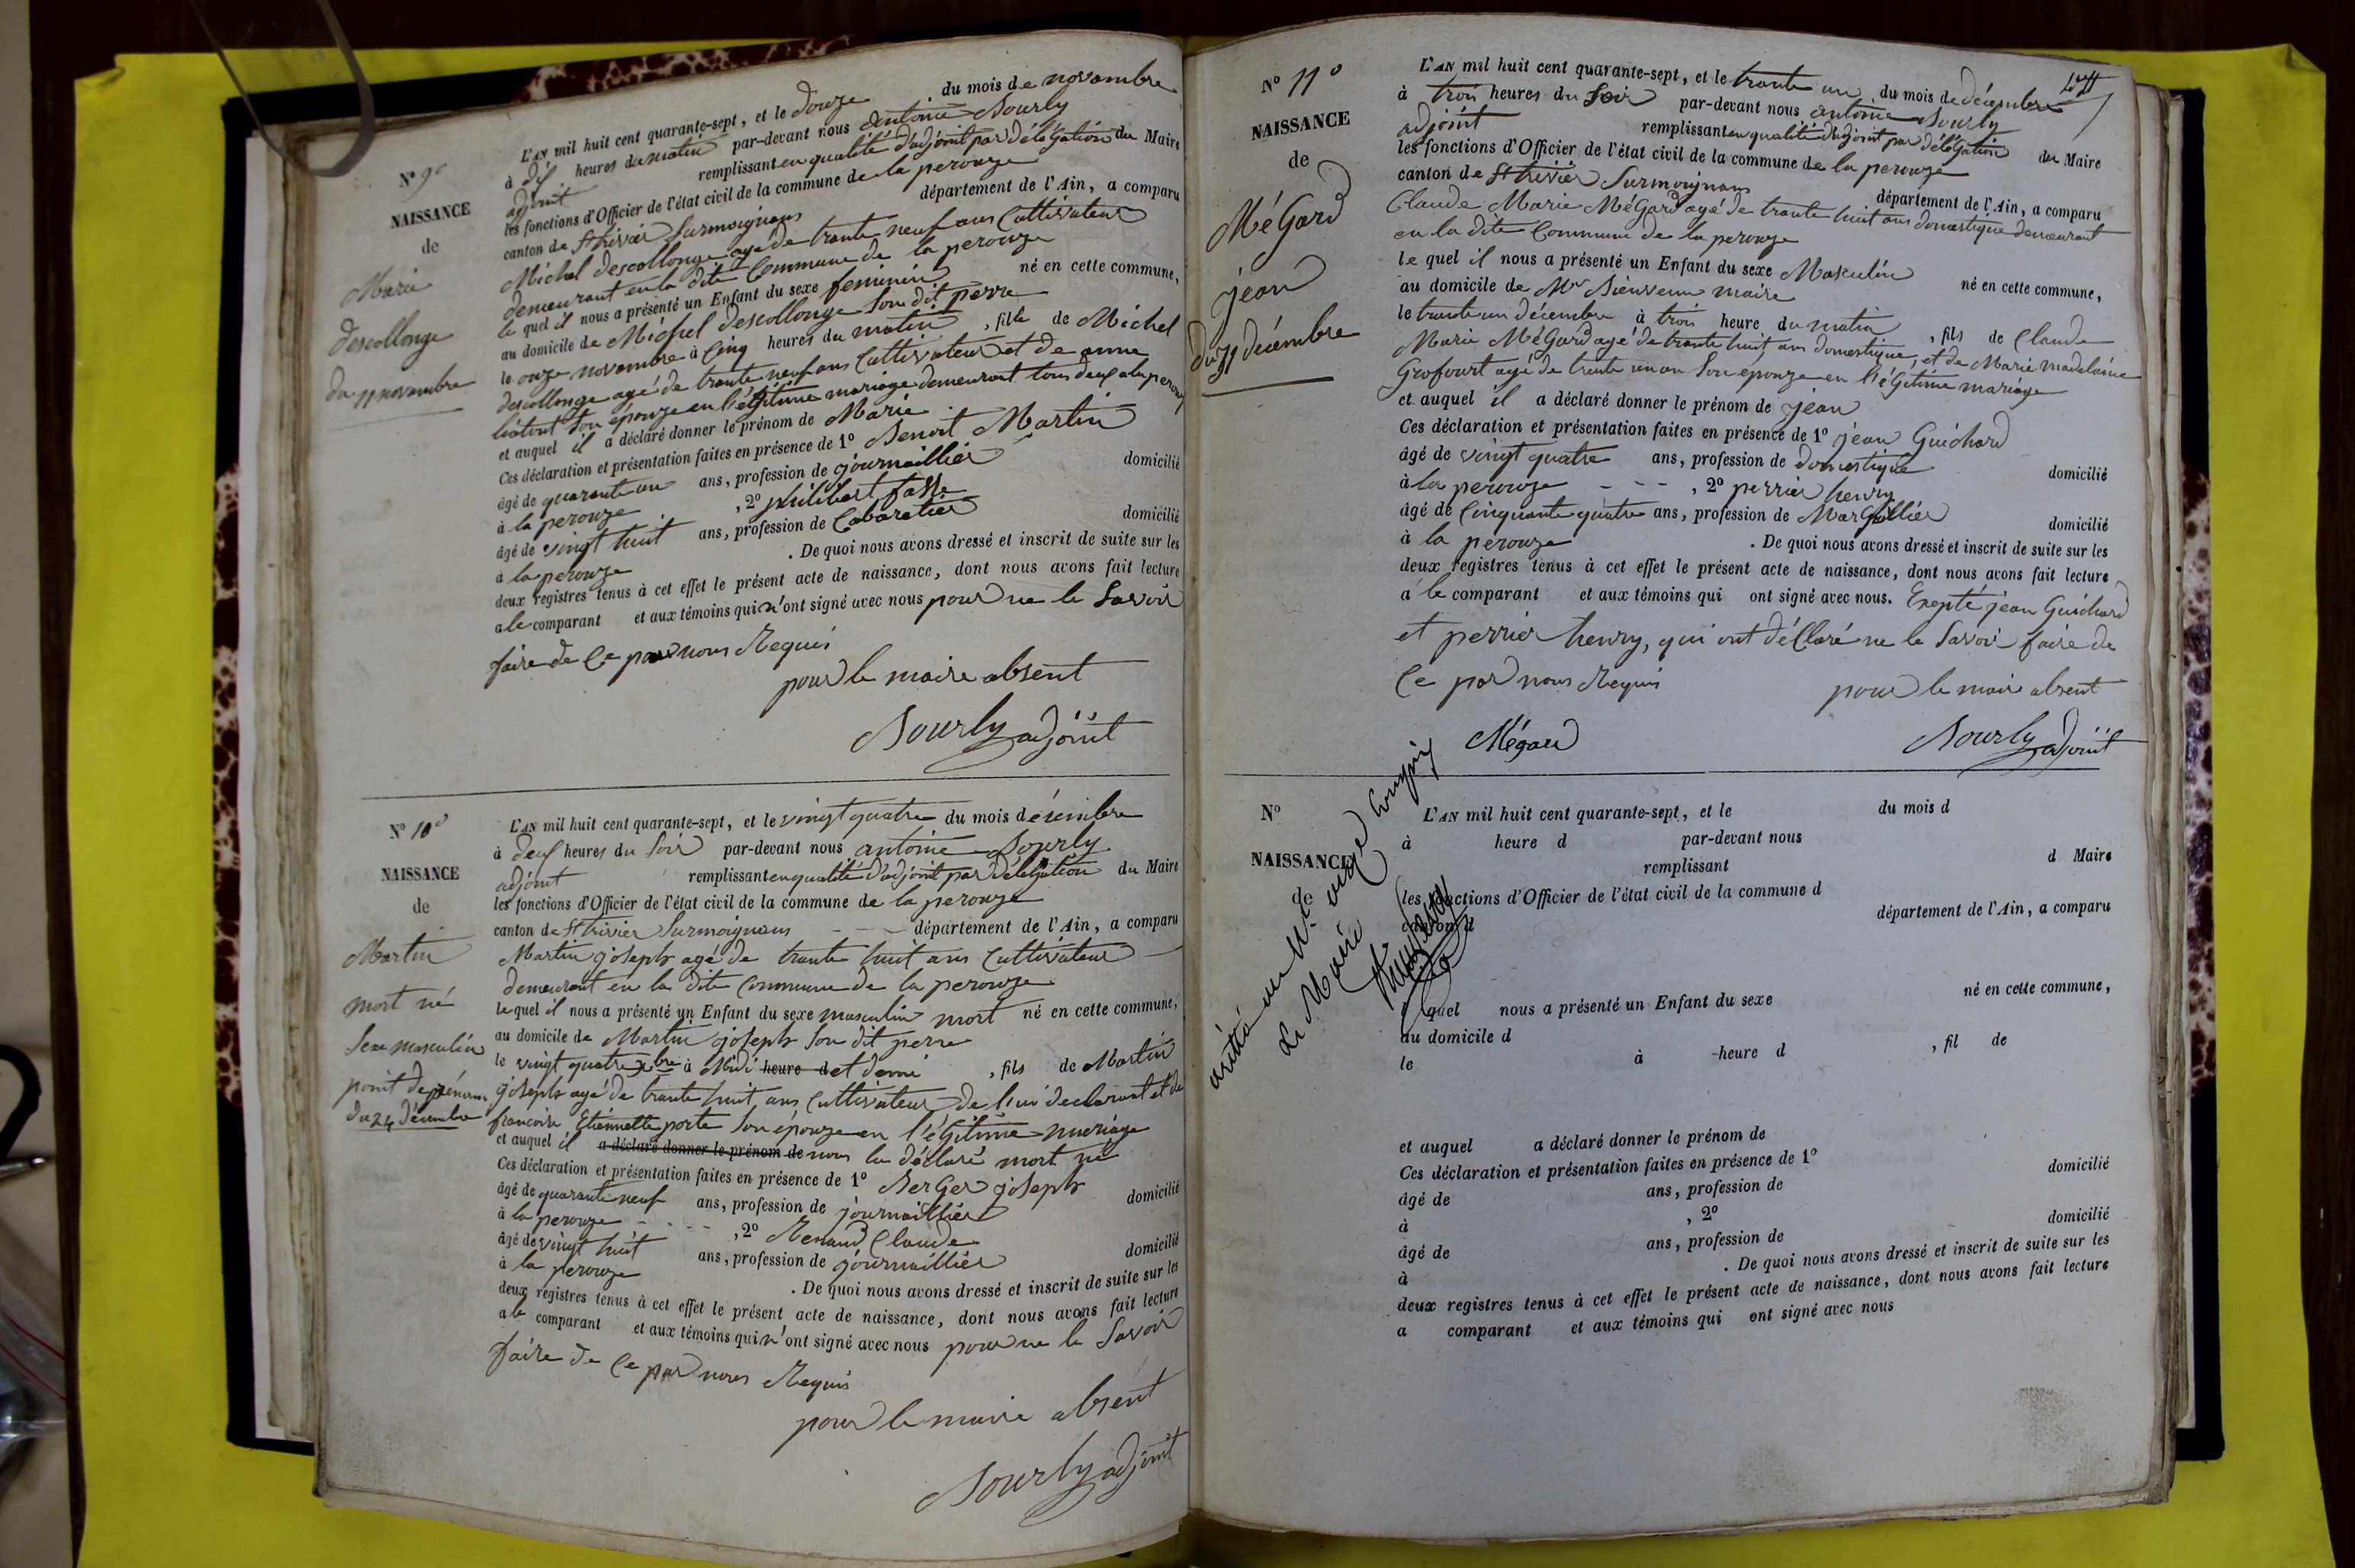 N° 9°
NAISSANCE
de
Marie
descollonge
du 11 novembre
L'AN mil huit cent quarante-sept, et le douze du mois de novembre
à dix heures du matin par-devant nous antoine Sourly
adjoint remplissant en qualité d'adjoint par délégation du Maire
les fonctions d'Officier de l'état civil de la commune de la perouze
canton de St trivier Surmoignans département de l'Ain, a comparu
Michel descollonge agé de trante neuf ans Cultivateur
demeurant en la dite Commune de la perouze
le quel il nous a présenté un Enfant du sexe feminin né en cette commune,
au domicile de Michel descollonge Son dit perre
le onze novembre à Cinq heures du matin, fille de Michel
descollonge agé de trante neuf ans Cultivateur et de anne
Son épouze en l'égitime mariage demeurant tous deux a la perouze
et auquel il a déclaré donner le prénom de Marie
Ces déclaration et présentation faites en présence de 1° Benoit Martin
âgé de quarante un ans, profession de journaillier domicilié
à la perouze, 2° philibert fasse
âgé de vingt huit ans, profession de Cabaretier domicilié
à la perouze. De quoi nous avons dressé et inscrit de suite sur les
deux registres tenus à cet effet le présent acte de naissance, dont nous avons fait lecture
a le comparant et aux témoins qui n'ont signé avec nous pour ne le Savoir
faire de Ce par nous Requis
pour le maire absent
Sourly adjoint
N° 10°
NAISSANCE
de
Martin
mort né
Sexe masculin
point de prénom
du 24 décembre
L'AN mil huit cent quarante-sept, et le vingt quatre du mois décembre
à deux heures du Soir par-devant nous antoine Sourly
adjoint remplissant en qualité d'adjoint par délégation du Maire
les fonctions d'Officier de l'état civil de la commune de la perouze
canton de St trivier Surmoignans - - département de l'Ain, a comparu
Martin joseph agé de trante huit ans Cultivateur
demeurant en la dite Commune de la perouze
le quel il nous a présenté un Enfant du sexe masculin mort né en cette commune,
au domicile de Martin joseph Son dit perre
le vingt quatre xbre à Midi heure d et demi, fils de Martin
joseph agé de trante huit ans Cultivateur de lui declarant et de
francoise Etiennette porte Son épouze en l'égitime mariage
et auquel il a déclaré donner le prénom de nous la déclaré mort né
Ces déclaration et présentation faites en présence de 1° Berger joseph
âgé de quarante neuf ans, profession de journaillier domicilié
à la perouze - - - -, 2° Renaud Claude
âgé de vingt huit ans, profession de journaillier domicilié
à la perouze. De quoi nous avons dressé et inscrit de suite sur les
deux registres tenus à cet effet le présent acte de naissance, dont nous avons fait lecture
a le comparant et aux témoins qui n'ont signé avec nous pour ne le Savoir
faire de Ce par nous Requis
pour le maire absent
Sourly adjoint
N° 11°
NAISSANCE
de
MéGard
jean
du 31 décembre
L'AN mil huit cent quarante-sept, et le trante un du mois de décembre
à trois heures du Soir par-devant nous antoine Sourly
adjoint remplissant en qualité d'adjoint par délégation du Maire
les fonctions d'Officier de l'état civil de la commune de la perouze
canton de St trivier Surmoignans département de l'Ain, a comparu
Claude Marie MéGard agé de trante huit ans domestique demeurant
en la dite Commune de la perouze
le quel il nous a présenté un Enfant du sexe Masculin né en cette commune,
au domicile de Mr Bienvenu maire
le trante un décembre à trois heure du matin, fils de Claude
Marie MéGard agé de trante huit ans domestique, et de Marie madelaine
Grofourt agé de trante un an Son épouze en l'égitime mariage
et auquel il a déclaré donner le prénom de jean
Ces déclaration et présentation faites en présence de 1° jean Guichard
âgé de vingt quatre ans, profession de domestique domicilié
à la perouze - - -, 2° perrier henry
âgé de Cinquante quatre ans, profession de MarGuillier domicilié
à la perouze. De quoi nous avons dressé et inscrit de suite sur les
deux registres tenus à cet effet le présent acte de naissance, dont nous avons fait lecture
a le comparant et aux témoins qui ont signé avec nous. Exepté jean Guichard
et perrier henry, qui ont déClaré ne le Savoir faire de
Ce par nous Requis
pour le maire absent
Mégard
Sourly adjoint
Le Maire
N°
NAISSANCE
de
L'AN mil huit cent quarante-sept, et le du mois d
à heure d par-devant nous
remplissant d Maire
les fonctions d'Officier de l'état civil de la commune d
canton d département de l'Ain, a comparu
quel nous a présenté un Enfant du sexe né en cette commune,
au domicile d
le à heure d, fil de
et auquel a déclaré donner le prénom de
Ces déclaration et présentation faites en présence de 1°
âgé de ans, profession de domicilié
à, 2°
âgé de ans, profession de domicilié
à. De quoi nous avons dressé et inscrit de suite sur les
deux registres tenus à cet effet le présent acte de naissance, dont nous avons fait lecture
a comparant et aux témoins qui ont signé avec nous